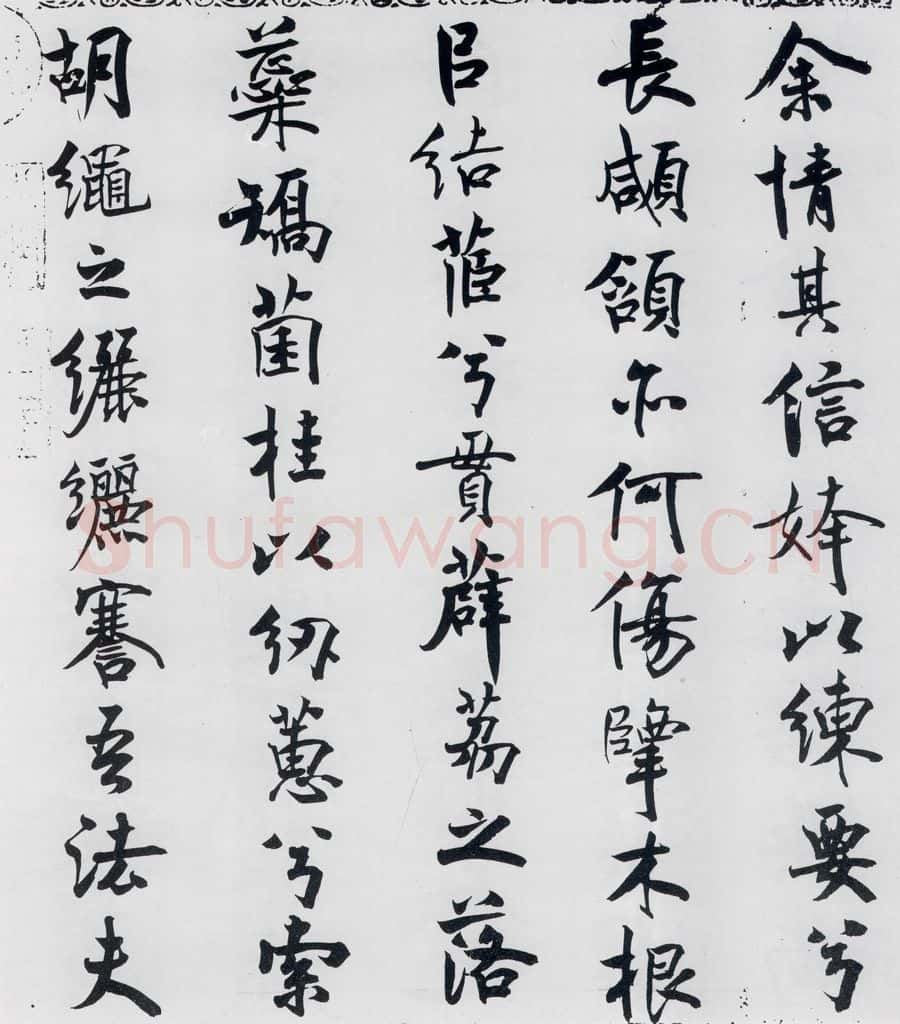 余情其信姱以練要兮
長顑頷亦何傷擥木根
㠯結茝兮貫薜荔之落
蘂矯菌桂以紉蕙兮索
胡繩之纚纚謇吾法夫
shufawang.CN